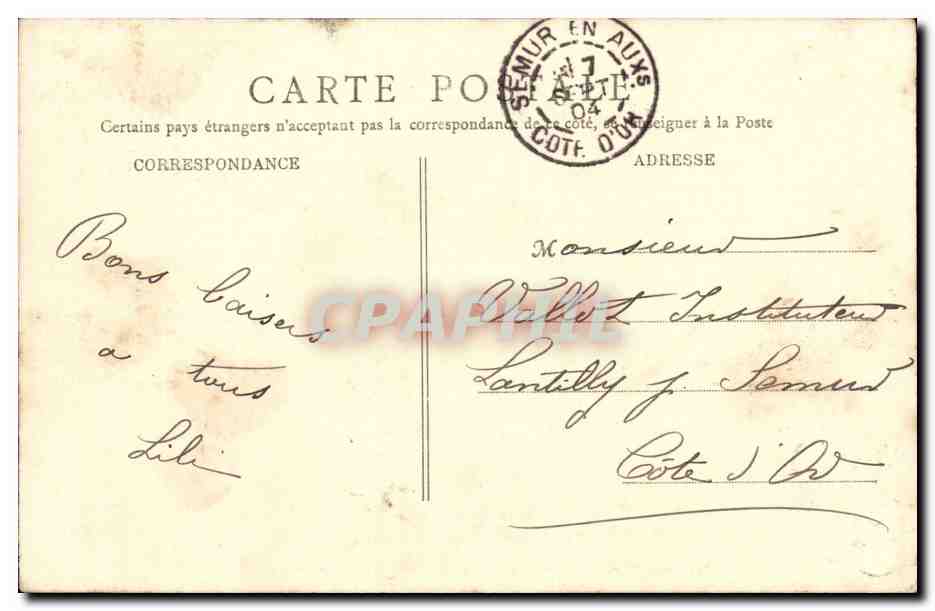 CARTE POSTALE
Certains pays étrangers n'acceptant pas la correspondance de ce côté, se renseigner à la Poste
CORRESPONDANCE
ADRESSE
SEMUR EN AUXS
7
SEPT
04
COTE D'OR
Bons baisers
a tous
Lili
Monsieur
Vallot Instituteur
Lantilly p. Semur
Côte d'Or
CPAPHIL